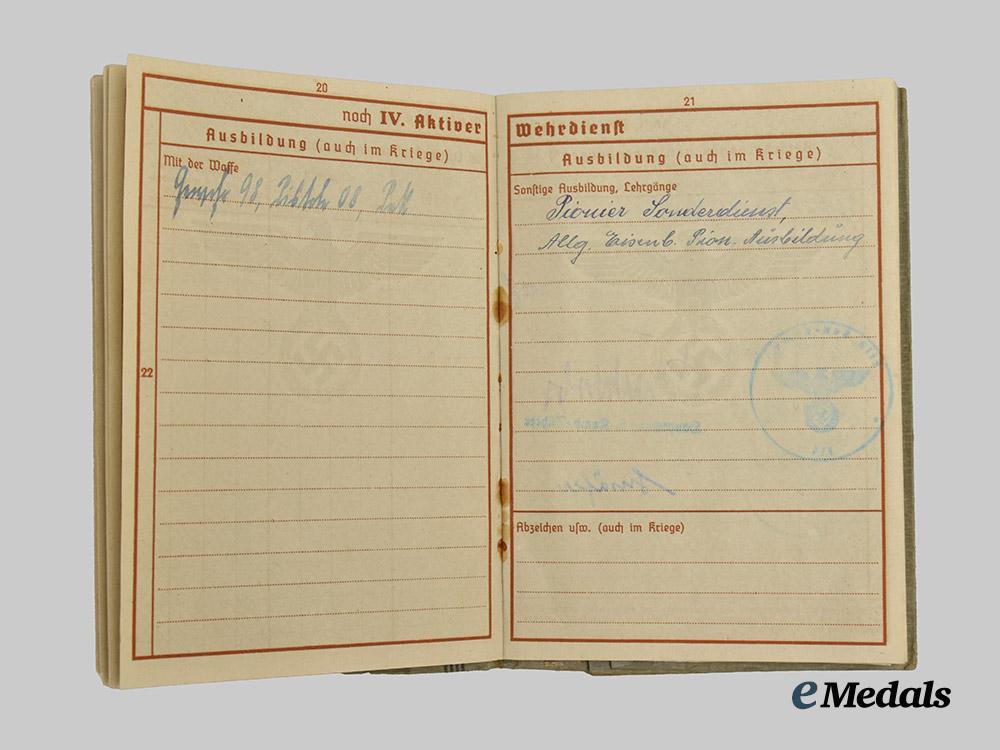 20
noch IV. Aktiver
Ausbildung (auch im Kriege)
Mit der Waffe
98, Pistole 08,
22
21
Wehrdienst
Ausbildung (auch im Kriege)
Sonstige Ausbildung, Lehrgänge
Pionier Sonderdienst,
Allg. Eisenb. Pion. Ausbildung
Abzeichen usw. (auch im Kriege)
eMedals